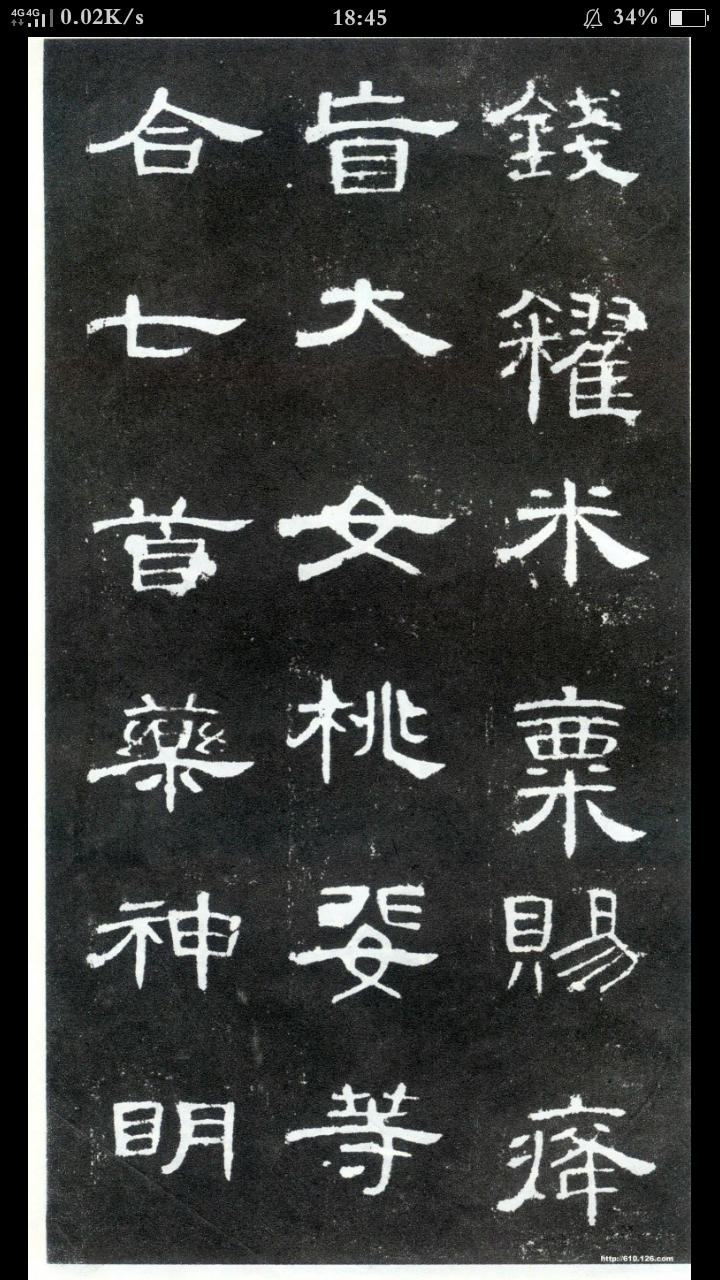 4G4G 0.02K/s 18:45 34%
錢糴米粟賜癃
盲大女桃婓等
合七首藥神明
http://610.126.com